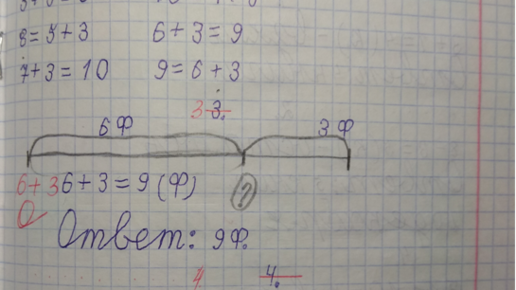 8 = 5 + 3 6 + 3 = 9
7 + 3 = 10 9 = 6 + 3
3 3.
6 Ф 3 Ф
6 + 3 6 + 3 = 9 (Ф)
?
О Ответ: 9 Ф.
4 4.